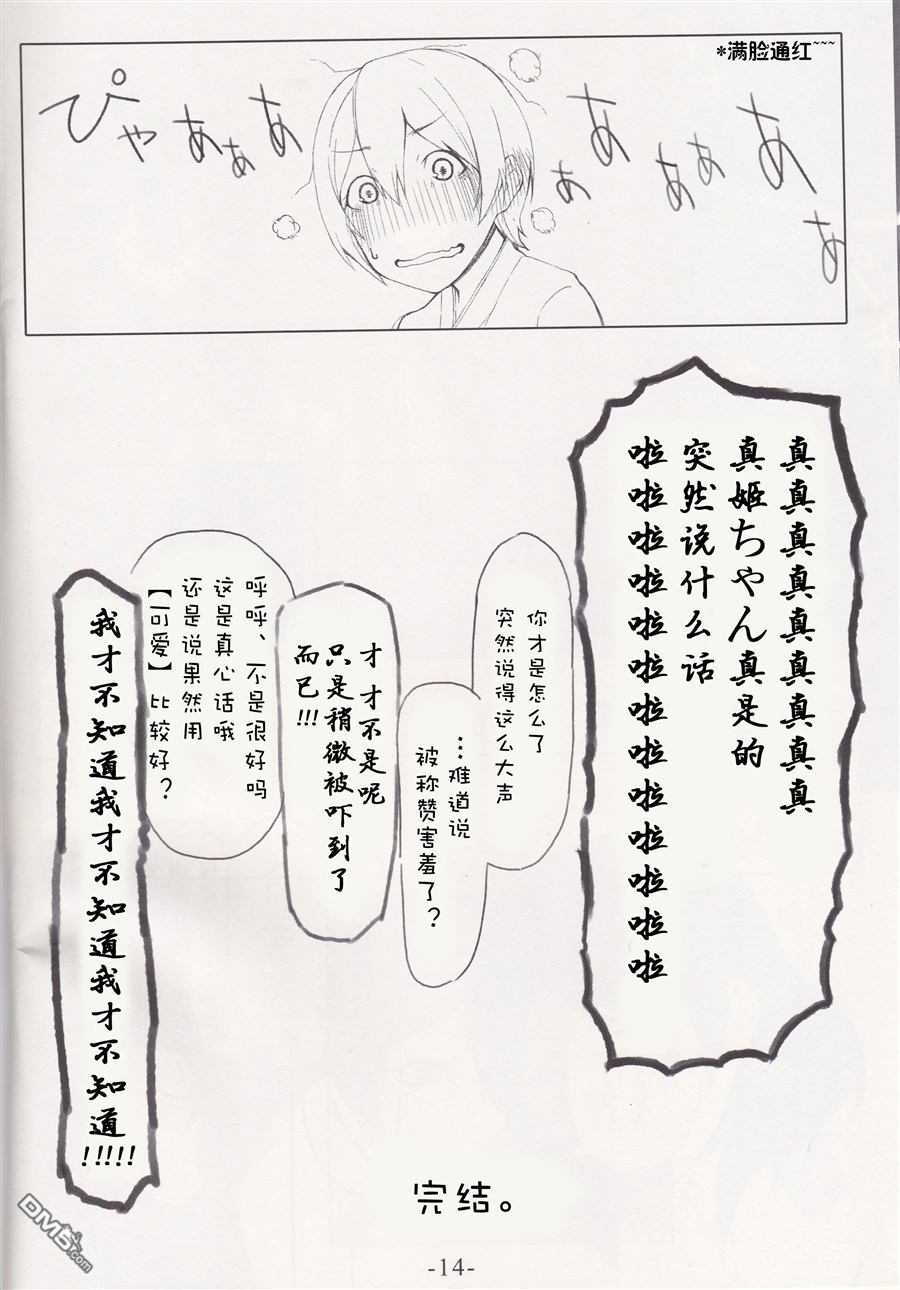 *满脸通红~~~
ぴゃあぁぁあぁあぁぁあぁ
真真真真真真真真真
真姬ちゃん真是的
突然说什么话
啦啦啦啦啦啦啦啦啦啦啦啦啦
你才是怎么了
突然说得这么大声
…难道说
被称赞害羞了？
才 才不是呢
只是稍微被吓到了
而已!!!
呼呼、不是很好吗
这是真心话哦
还是说果然用
【可爱】比较好？
我才不知道我才不知道我才不知道!!!!!
完结。
-14-
DM5.com